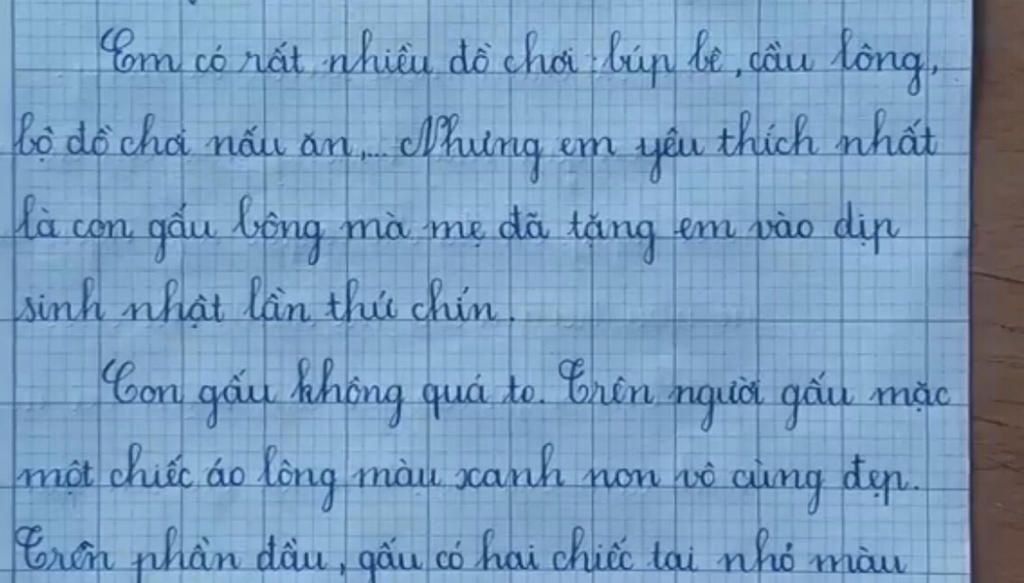 Em có rất nhiều đồ chơi: búp bê, cầu lông,
bộ đồ chơi nấu ăn,... Nhưng em yêu thích nhất
là con gấu bông mà mẹ đã tặng em vào dịp
sinh nhật lần thứ chín.
Con gấu không quá to. Trên người gấu mặc
một chiếc áo lông màu xanh non vô cùng đẹp.
Trên phần đầu, gấu có hai chiếc tai nhỏ màu